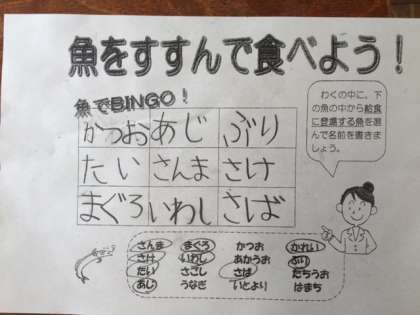 魚をすすんで食べよう！
魚でBINGO！
わくの中に、下
の魚の中から給食
に登場する魚を選
んで名前を書きま
しょう。
かつお あじ ぶり
たい さんま さけ
まぐろ いわし さば
さんま まぐろ かつお かれい
さけ いわし あかうお ぶり
たい さごし さば たちうお
あじ うなぎ いとより はまち